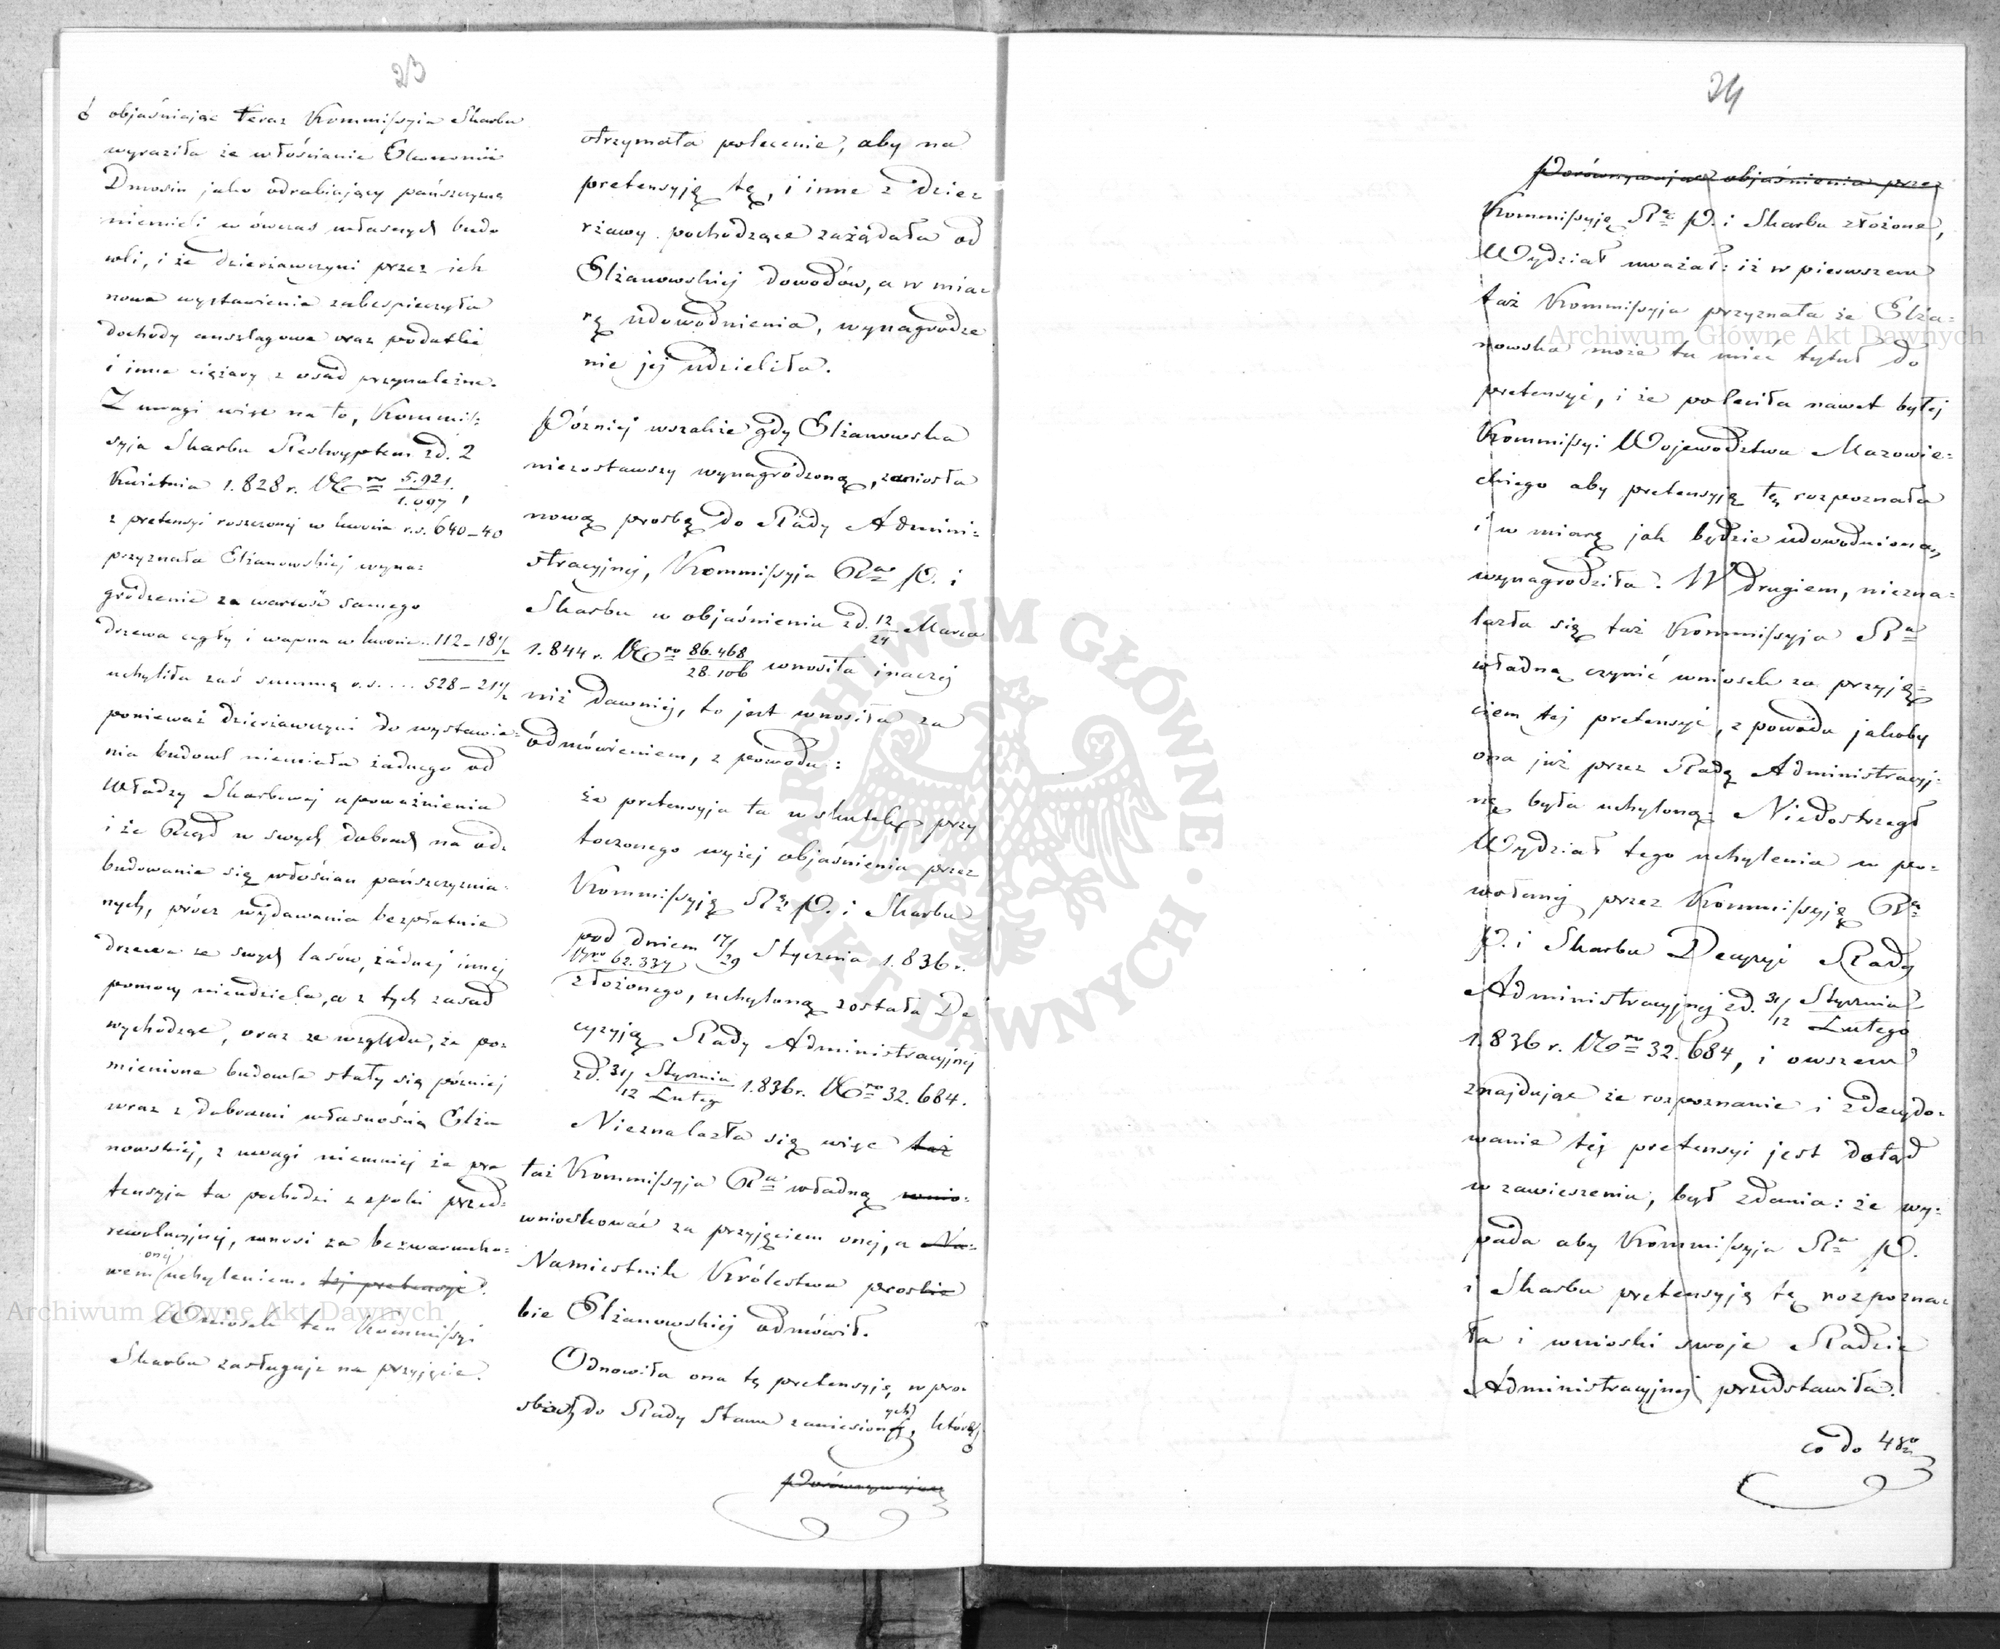 23
otrzymała polecenie, aby na
pretensyją tę, i inne z dzier
żawy pochodzące zażądała od
Elżanowskiej dowodów, a w mia-
rę udowodnienia, wynagrodze
nie jej udzieliła.
Później wszakże gdy Elżanowska
niezostawszy wynagrodzoną, zaniosła
nową prośbę do Rady Admini-
stracyjnej, Kommissyja R. P. i
Skarbu w objaśnieniu z d. 12/24 Marca
1.844 r. Nro 86.468/28.106 wnosiła inaczej
niż dawniej, to jest wnosiła za
odmówieniem, z powodu:
że pretensyja ta w skutek przy
toczonego wyżej objaśnienia przez
Kommissyję R. P. i Skarbu
pod dniem 17/29 Stycznia 1.836 r.
Nro 62.334
złożonego, uchyloną została De
cyzyją Rady Administracyjnej
z d. 31/12 Stycznia/Lutego 1.836 r. Nro 32.684.
Nieznalazła się więc też
taż Kommissyja R. władną wnio-
wnioskować za przyjęciem onej, a Na-
Namiestnik Królestwa prośbie
bie Elżanowskiej odmówił.
Odnowiła ona tę pretensyję, w pro-
śbach do Rady Stanu zaniesionych, którą
Porównywając
♂ objaśniając teraz Kommissyja Skarbu
wyraziła że włościanie Ekonomii
Dmosin jako odrabiający pańszczyznę
niemieli w ówczas własnych budo
wli, i że dzierżawczyni przez ich
nowe wystawienie zabespieczyła
dochody anszlagowe oraz podatki
i inne ciężary z osad przynależne.
Z uwagi więc na to, Kommis-
syja Skarbu Reskryptem z d. 2
Kwietnia 1.828 r. Nro 5.921/1.097,
z pretensyi roszczonej w kwocie r.s. 640-40
przyznała Elżanowskiej wyna-
grodzenie za wartość samego
drzewa cegły i wapna w kwocie .. 112-18½
uchyliła zaś summę r.s. .... 528-21½
ponieważ dzierżawczyni do wystawie-
nia budowl niemiała żadnego od
Władzy Skarbowej upoważnienia
i że Rząd w swych dobrach na od-
budowanie się włościan pańszczyznia-
nych, prócz wydawania bezpłatnie
drzewa ze swych lasów, żadnej innej
pomocy nieudziela, a z tych zasad
wychodząc, oraz ze względu, że po-
mienione budowle stały się później
wraz z dobrami własnością Elża
nowskiej, z uwagi niemniej że pre
tensyja ta pochodzi z epoki przed-
rewolucyjnej, wnosi za bezwarunko-
wem onej uchyleniem. tej pretensyi.
Wniosek ten Kommissyi
Skarbu zasługuje na przyjęcie.
24
Porównywając objaśnienia przez
Kommissyję R. P. i Skarbu złożone,
Wydział uważał: iż w pierwszem
taż Kommissyja przyznała że Elża-
nowska może tu mieć tytuł do
pretensyi, i że poleciła nawet byłej
Kommissyi Województwa Mazowie-
ckiego aby pretensyją tę rozpoznała
i w miarę jak będzie udowodniona,
wynagrodziła. W drugiem, niezna-
lazła się taż Kommissyja R.
władną czynić wniosek za przyję-
ciem tej pretensyi, z powodu jakoby
ona już przez Radę Administracyj-
ną była uchyloną. Niedostrzegł
Wydział tego uchylenia w po-
wołanej przez Kommissyję R.
P. i Skarbu Decyzyi Rady
Administracyjnej z d. 31/12 Stycznia/Lutego
1.836 r. Nro 32.684, i owszem
znajdując że rozpoznanie i zdecydo-
wanie tej pretensyi jest dotąd
w zawieszeniu, był zdania: że wy-
pada aby Kommissyja R. P.
i Skarbu pretensyją tę rozpozna-
ła i wnioski swoje Radzie
Administracyjnej przedstawiła.
co do 4go
Archiwum Główne Akt Dawnych
Archiwum Główne Akt Dawnych
ARCHIWUM GŁÓWNE · AKT DAWNYCH ·